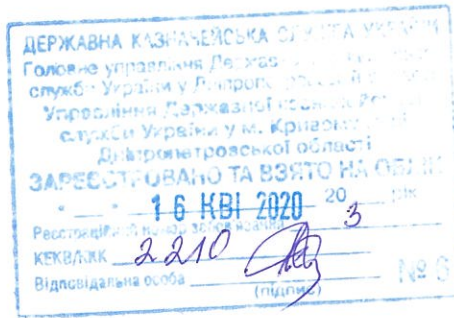 ДЕРЖАВНА КАЗНАЧЕЙСЬКА СЛУЖБА УКРАЇНИ
Головне управління Державної
служби України у Дніпропетровській
Управління Державної казначейської
служби України у м. Кривому
Дніпропетровської області
ЗАРЕЄСТРОВАНО ТА ВЗЯТО НА ОБЛІК
16 КВІ 2020 20 рік
Реєстраційний номер зобов'язання 3
КЕКВ/ККК 2210
Відповідальна особа
(підпис) № 6